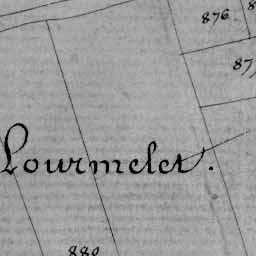 876
877
Lourmelet.
880